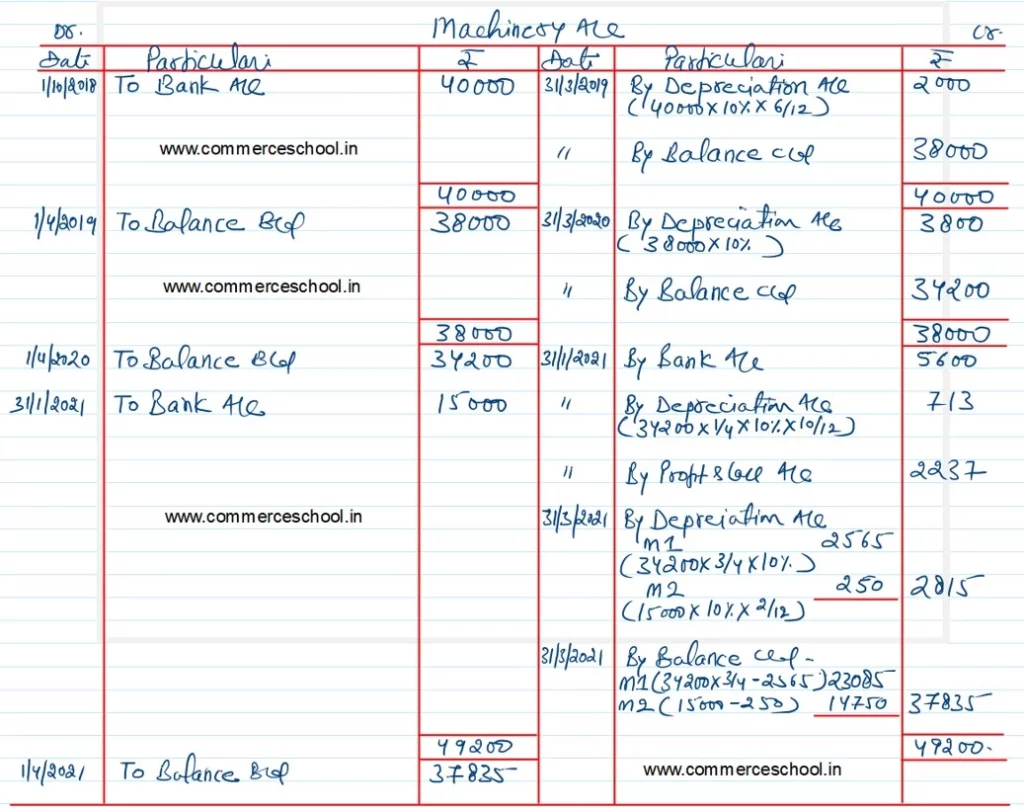 Dr. Machinery A/c Cr.
Date Particulars ₹ Date Particulars ₹
1/10/2018 To Bank A/c 40000 31/3/2019 By Depreciation A/c 2000
(40000 x 10% x 6/12)
www.commerceschool.in " By Balance c/d 38000
40000 40000
1/4/2019 To Balance B/d 38000 31/3/2020 By Depreciation A/c 3800
(38000 x 10%)
www.commerceschool.in " By Balance c/d 34200
38000 38000
1/4/2020 To Balance B/d 34200 31/1/2021 By Bank A/c 5600
31/1/2021 To Bank A/c 15000 " By Depreciation A/c 713
(34200 x 1/4 x 10% x 10/12)
" By Profit & Loss A/c 2237
www.commerceschool.in 31/3/2021 By Depreiation A/c
M1 2565
(34200 x 3/4 x 10%)
M2 250 2815
(15000 x 10% x 2/12)
31/3/2021 By Balance c/d -
M1 (34200 x 3/4 - 2565) 23085
M2 (15000 - 250) 14750 37835
49200 49200.
1/4/2021 To Balance B/d 37835 www.commerceschool.in